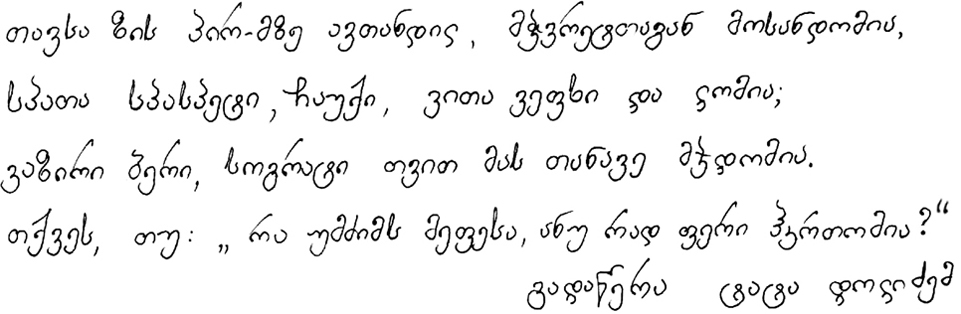 თავსა ზის პირ-მზე ავთანდილ, მჭვრეტთაგან მოსანდომია,
სპათა სპასპეტი, ჩაუქი, ვითა ვეფხი და ლომია;
ვაზირი ბერი, სოგრატი თვით მას თანავე მჭდომია.
თქვეს, თუ: „რა უმძიმს მეფესა, ანუ რად ფერი ჰკრთომია?“
გადაწერა ტატა დოლიძემ